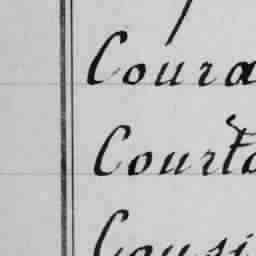 Coura
Courta
Cousi